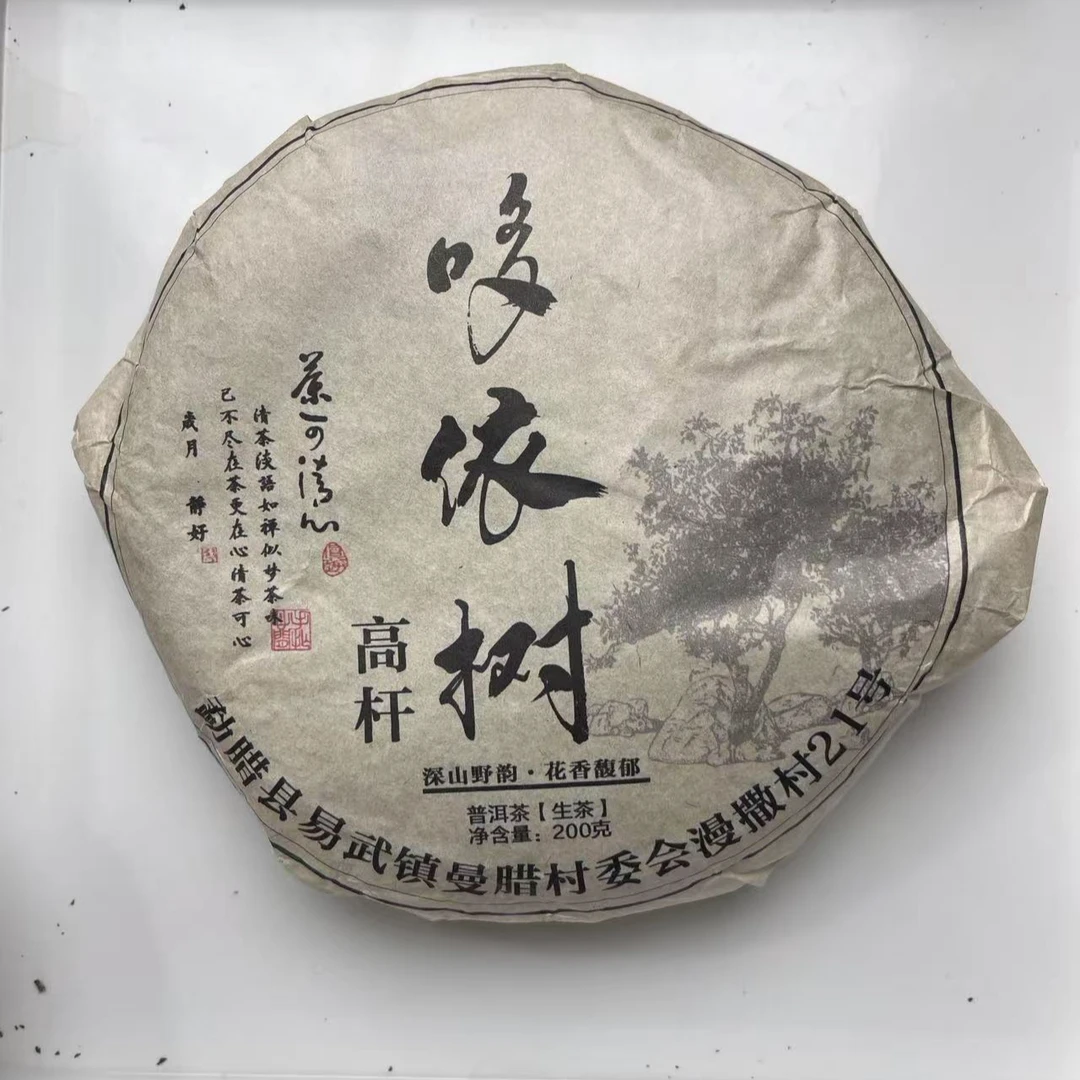 哆依树
高杆
茶可清心
清茶浅语如禅似梦茶味
已不尽在茶更在心清茶可心
岁月 静好
深山野韵·花香馥郁
普洱茶【生茶】
净含量：200克
勐腊县易武镇曼腊村委会漫撒村21号